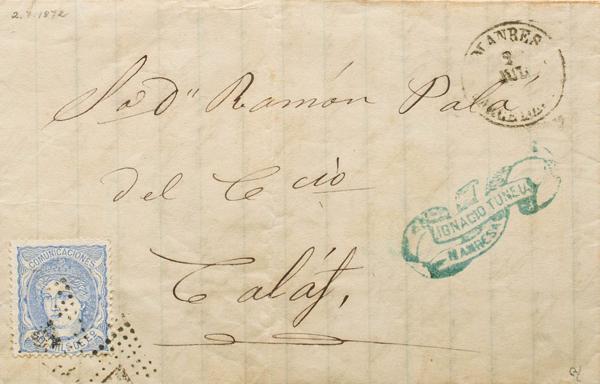 2.7.1872
MANRES
2
JUL
BARCELO
Sr Dn Ramón Palá
del Ccio
Caláf,
IGNACIO TUNEU
MANRESA
COMUNICACIONES
50 MILS DE Eo